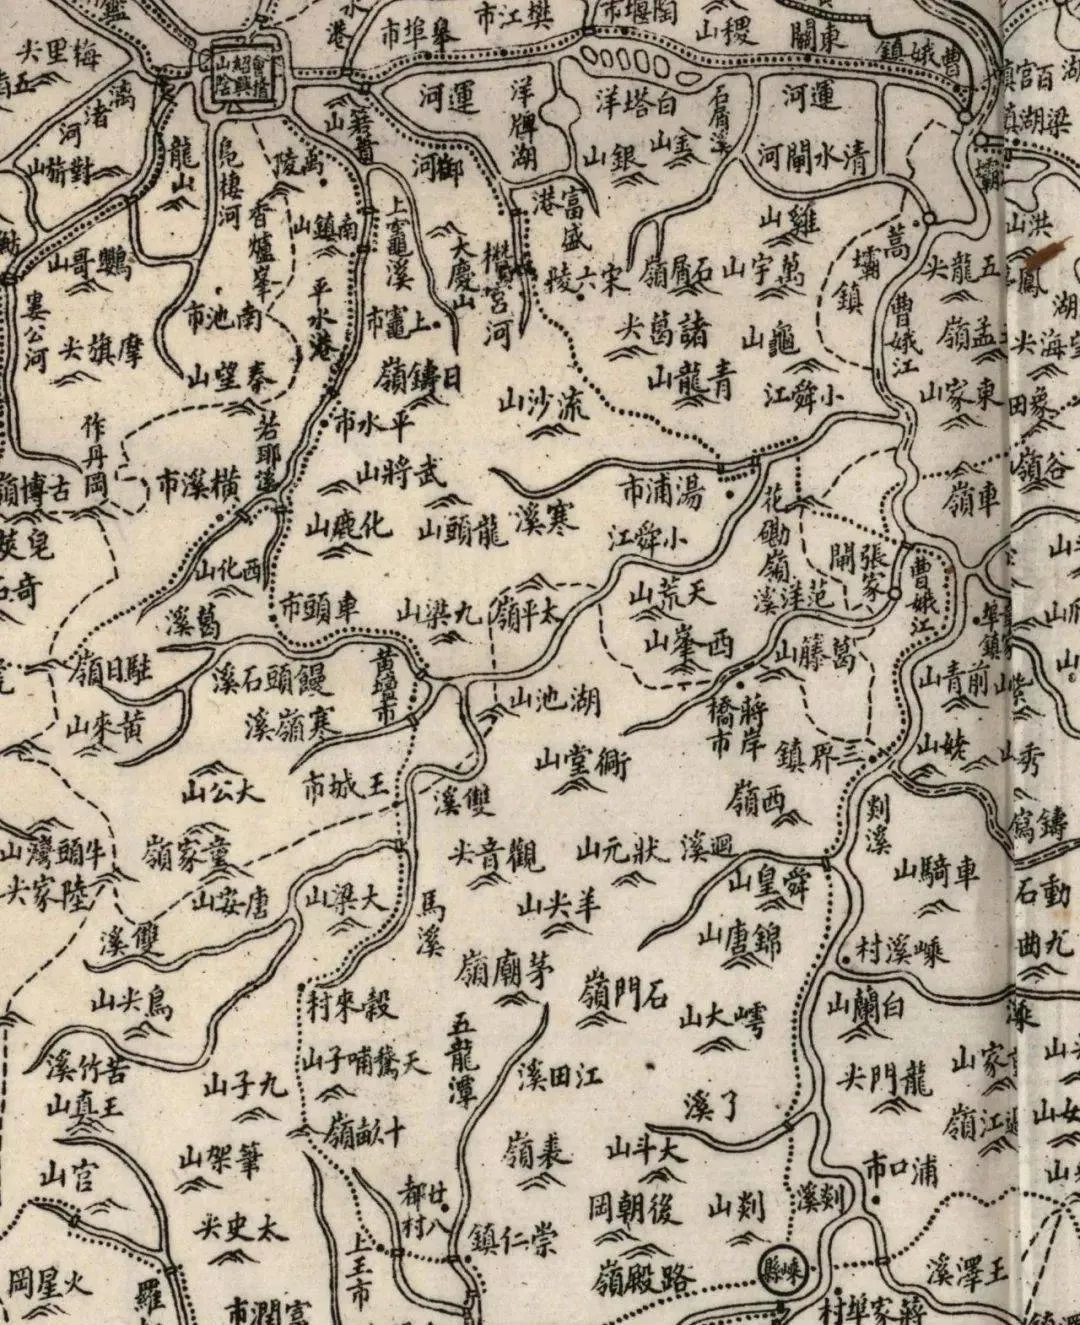 梅里尖
會稽
紹興
山陰
皋埠市
樊江市
陶堰市
稷山
東關
曹娥鎮
百官鎮
梁湖鎮
漓渚河
運河
洋牌湖
白塔洋
石屑溪
運河
箬簣山
清水閘河
金山
銀山
對旂山
龍山
烏樓河
香爐峯
萬陵
南鎮山
御河
上竈溪
大慶山
富盛港
雞山
蒿壩鎮
洪山
鸚哥山
南池市
平水港
上竈市
攢宮河
宋六陵
石屑嶺
萬宇山
五龍尖
曹娥江
婁公河
摩旗尖
秦望山
日鑄嶺
諸葛尖
龜山
青龍山
小舜江
東家山
作丹岡
若耶溪
平水市
流沙山
古博嶺
橫溪市
武將山
湯浦市
寒溪
龍頭山
化鹿山
小舜江
花磡嶺
車嶺
張家閘
曹娥江
西化山
車頭市
九梁山
太平嶺
天荒山
范洋溪
葛溪
駐日嶺
饅頭石溪
黃壇市
西峯山
葛藤山
前青山
黃來山
寒嶺溪
湖池山
蔣岸橋市
三界鎮
姥山
秀山
大公山
王城市
雙溪
衙堂山
西嶺
剡溪
牛頭灣山
童家嶺
觀音尖
狀元山
迴溪
車騎山
陸家尖
唐安山
大梁山
馬溪
羊尖山
舜皇山
雙溪
錦唐山
嵊溪村
烏尖山
榖來村
茅廟嶺
石門嶺
白蘭山
五龍潭
崿大山
苦竹溪
九子山
天驚哺子山
江田溪
龍門尖
王真山
十畝嶺
了溪
官山
筆架山
裘嶺
大斗山
浦口市
太史尖
廿八都村
後朝岡
剡山
剡溪
火星岡
上王市
崇仁鎮
路殿嶺
嵊縣
王澤溪
蔣家埠村